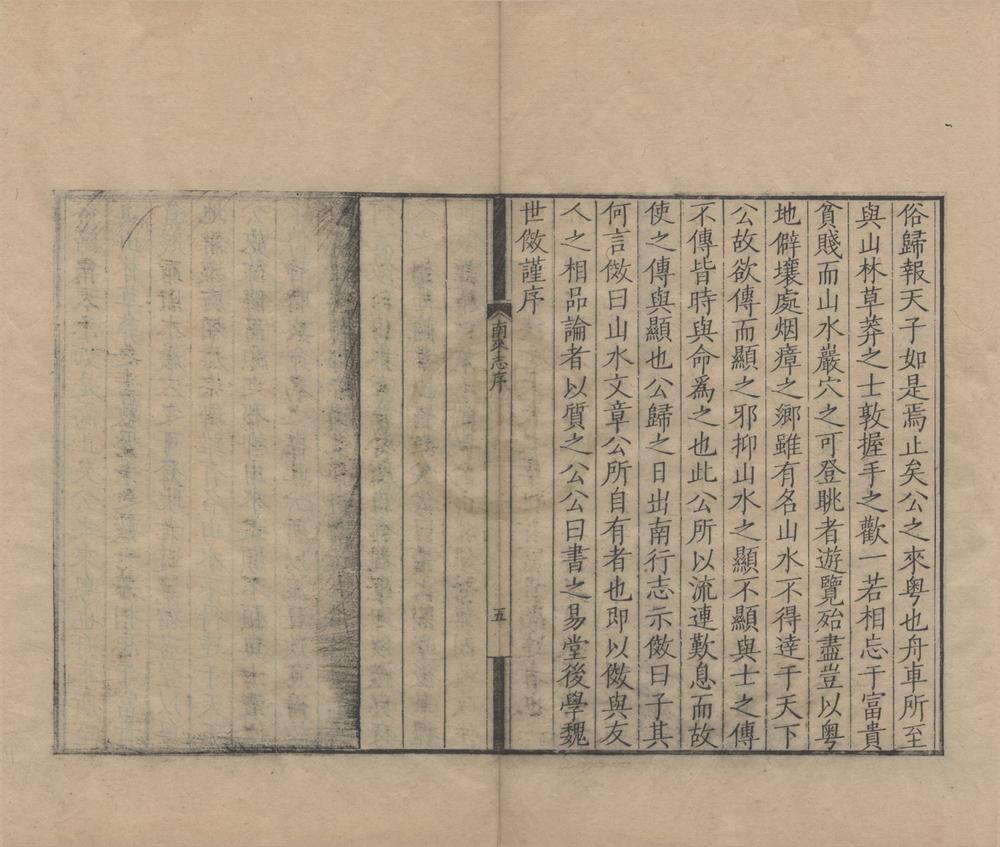 俗歸報天子如是焉止矣公之來粤也舟車所至
與山林草莽之士敦握手之歡一若相忘于富貴
貧賤而山水巖穴之可登眺者遊覽殆盡豈以粤
地僻壤處烟瘴之鄉雖有名山水不得達于天下
公故欲傳而顯之邪抑山水之顯不顯與士之傳
不傳皆時與命爲之也此公所以流連歎息而故
使之傳與顯也公歸之日出南行志示傚曰子其
何言傚曰山水文章公所自有者也即以傚與友
人之相品論者以質之公公曰書之易堂後學魏
世傚謹序
南來志序
五